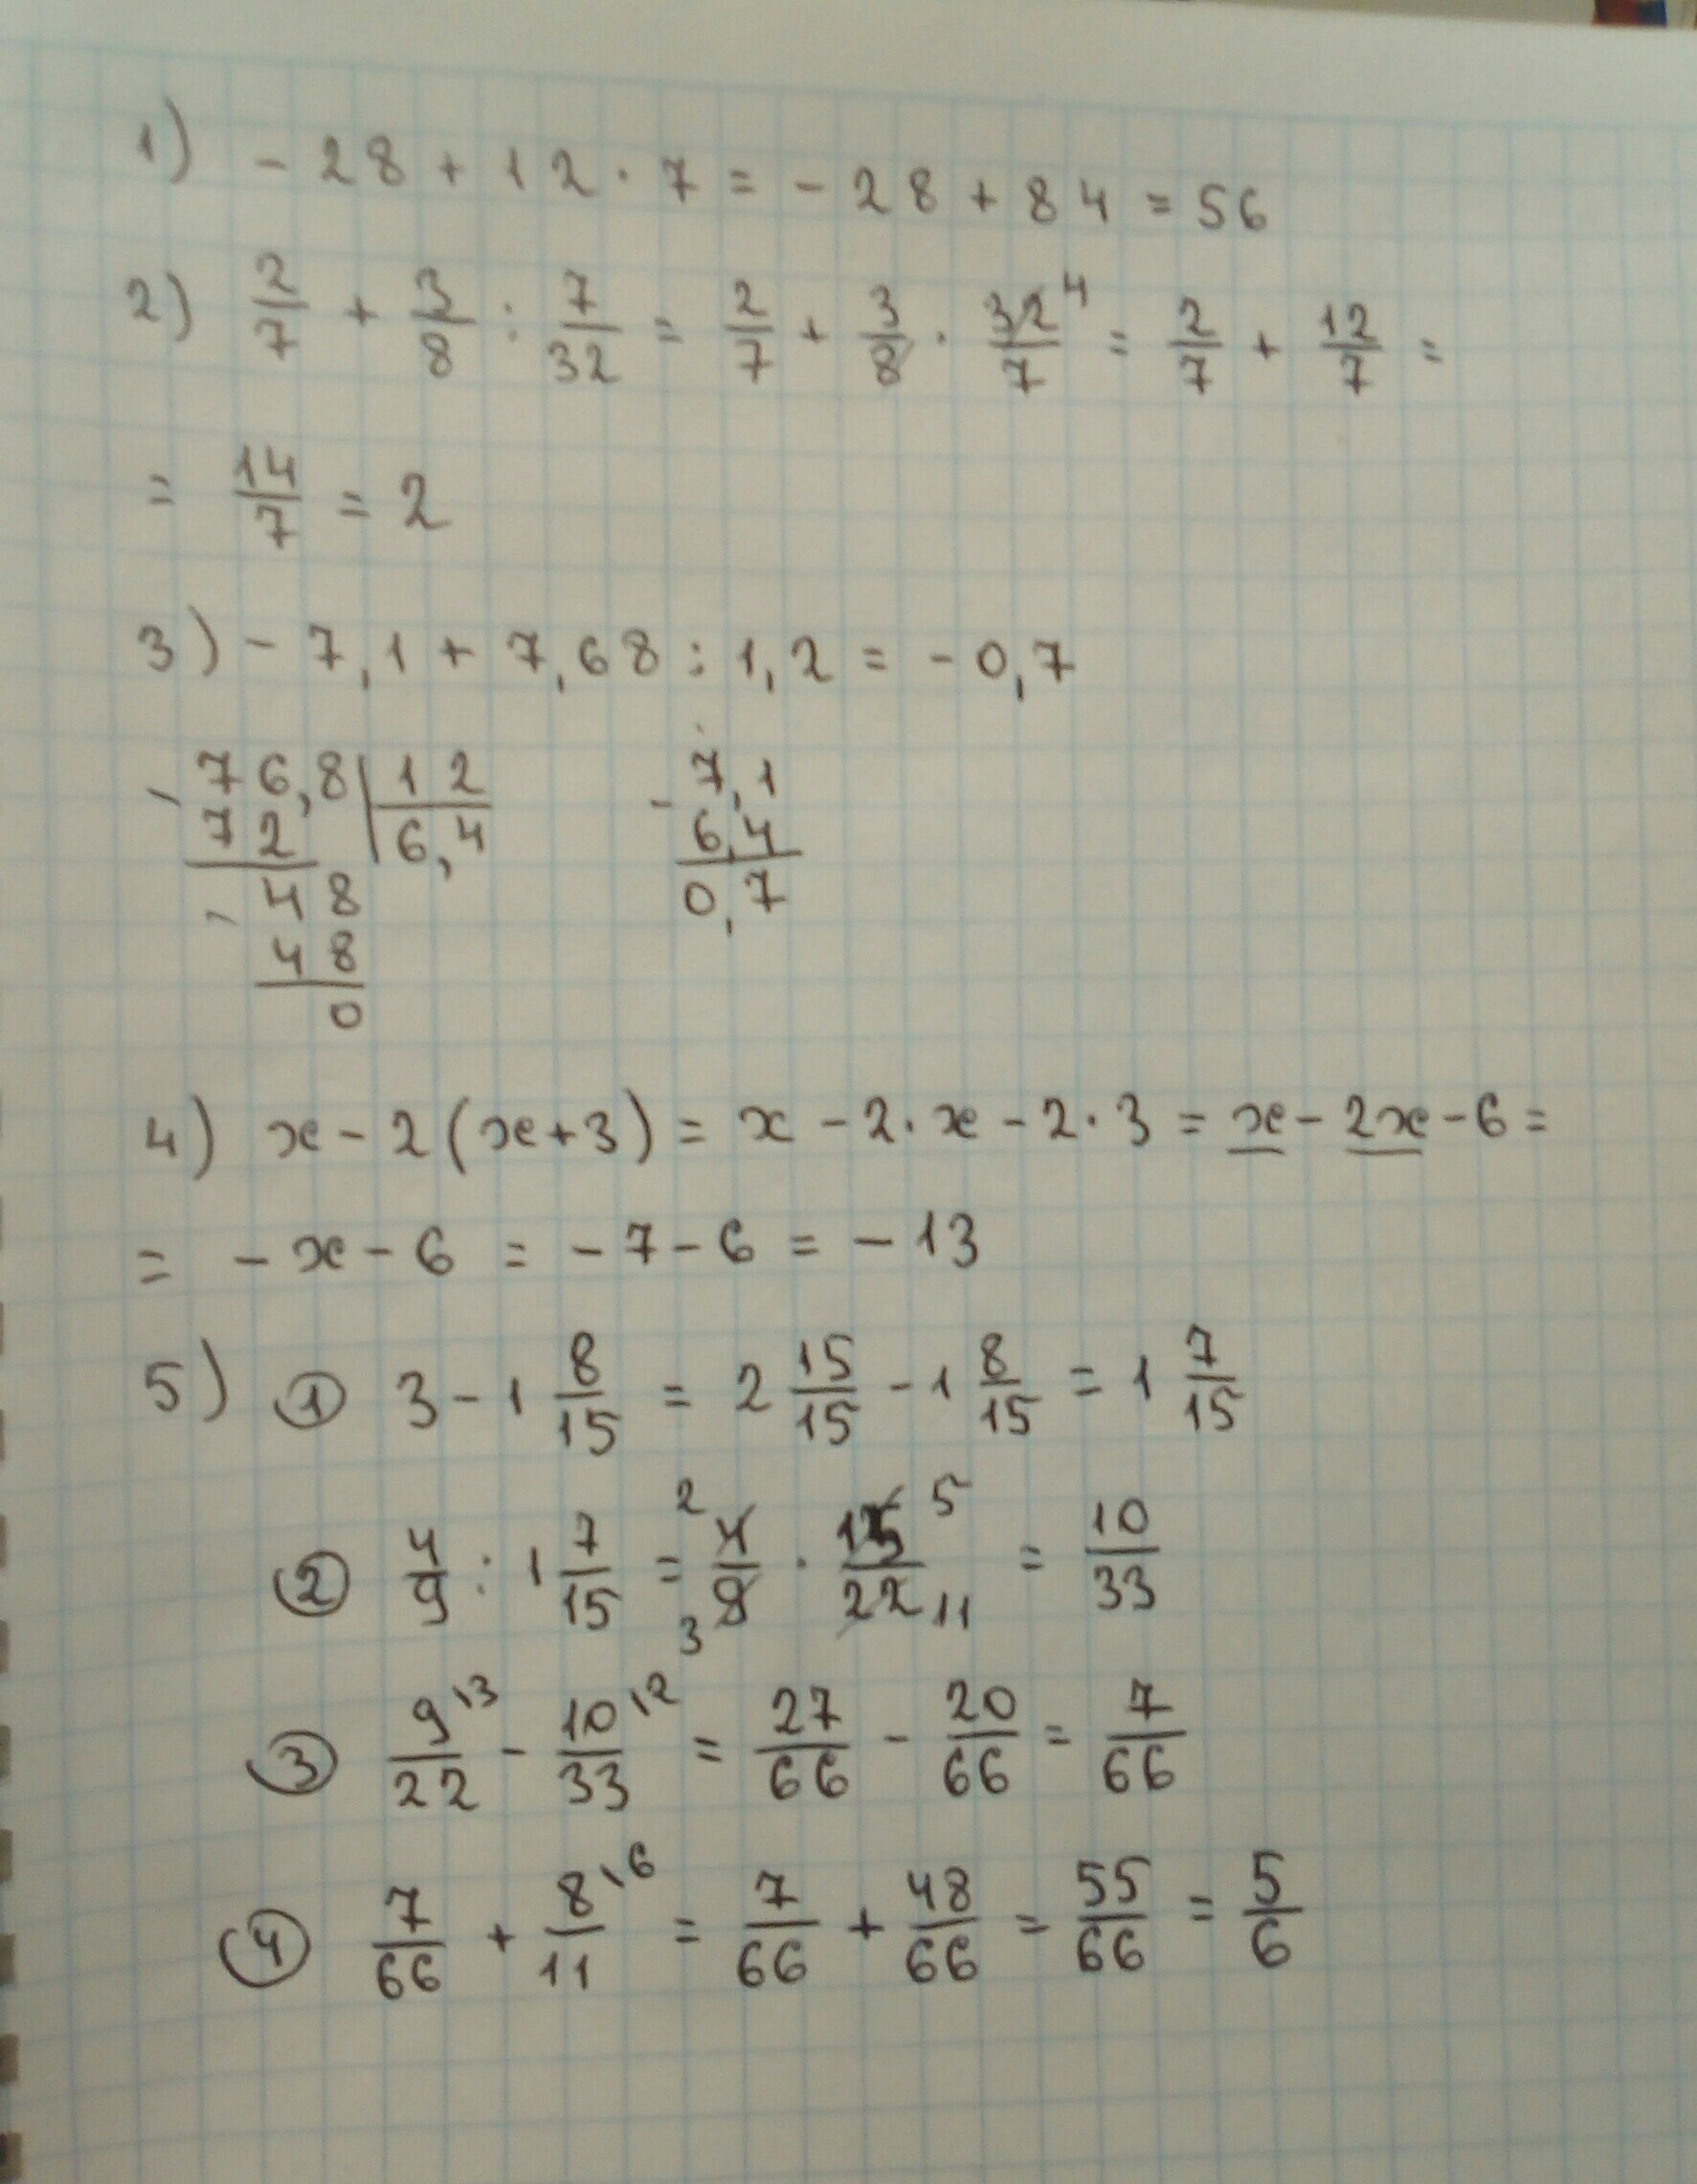 1) - 28 + 12 · 7 = - 28 + 84 = 56
2) 2/7 + 3/8 : 7/32 = 2/7 + 3/8 · 32/7 4 = 2/7 + 12/7 =
= 14/7 = 2
3) - 7,1 + 7,68 : 1,2 = - 0,7
- 76,8 | 12 - 7,1
72 | 6,4 6,4
- 48 0,7
48
0
4) x - 2 (x + 3) = x - 2 · x - 2 · 3 = x - 2x - 6 =
= - x - 6 = - 7 - 6 = - 13
5) ① 3 - 1 8/15 = 2 15/15 - 1 8/15 = 1 7/15
② 4/9 : 1 7/15 = 2 4/9 3 · 15/22 5 11 = 10/33
③ 9\3/22 - 10\2/33 = 27/66 - 20/66 = 7/66
④ 7/66 + 8\6/11 = 7/66 + 48/66 = 55/66 = 5/6